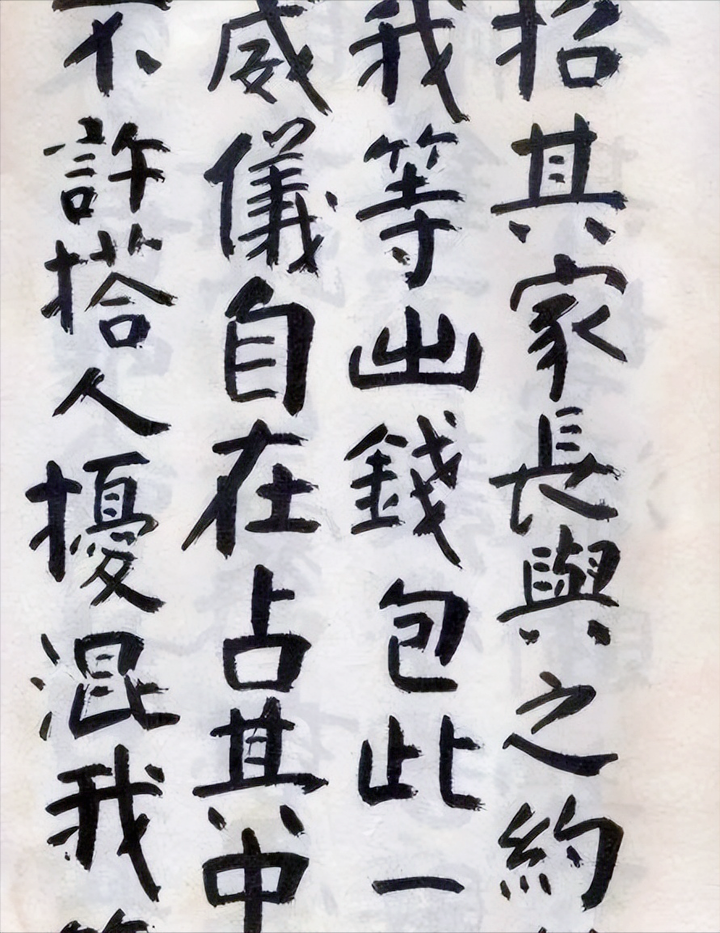 招其家長與之約
我等出錢包此一
威儀自在占其中
不許搭人擾混我